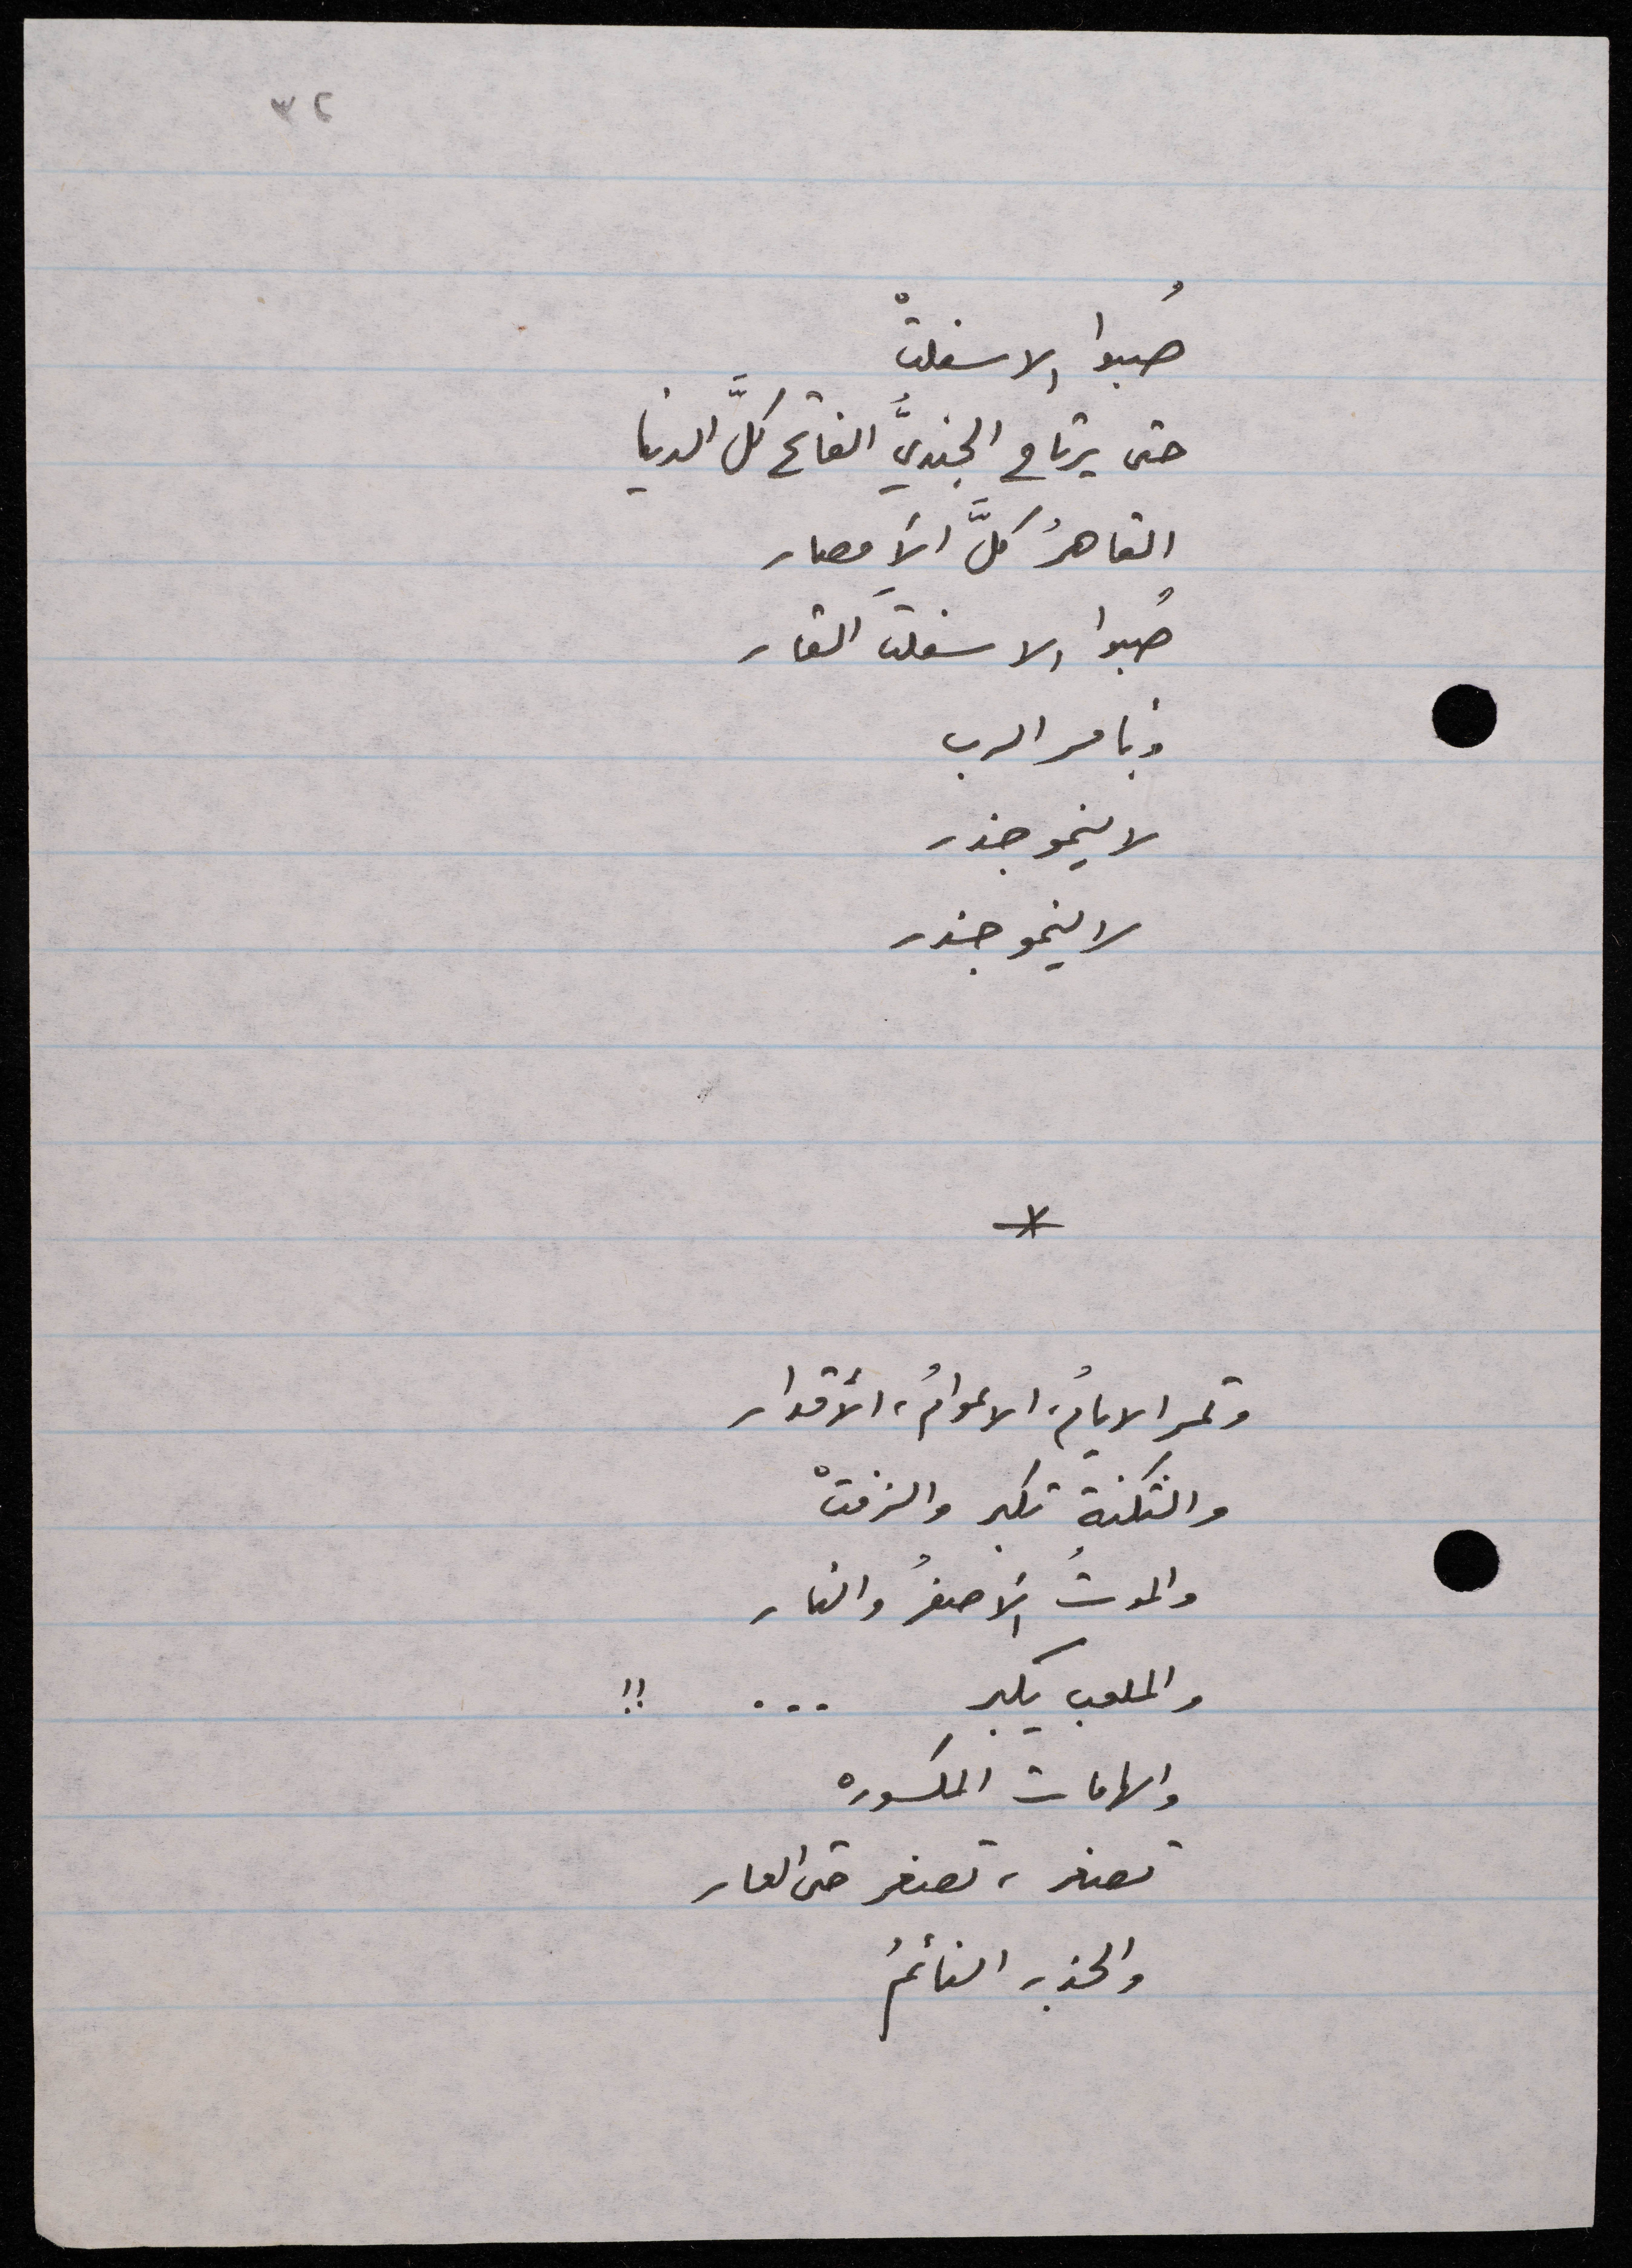 ٣٢
صُبوا الاسفلتْ
حتى يرتاح الجنديُّ الفاتح كلَّ الدنيا
القاهرُ كلَّ الأمصار
صُبوا الاسفلتَ القار
وبأمر الرب
لا ينمو جذر
لا ينمو جذر
*
وتمر الايامُ، الاعوامُ، الأقدار
والثكنة تكبر والزفتْ
والموتُ الأصفرُ والنار
والملعب يكبر ... !!
والهامات المكسوره
تصغر، تصغر حتى العار
والجذر النائمُ